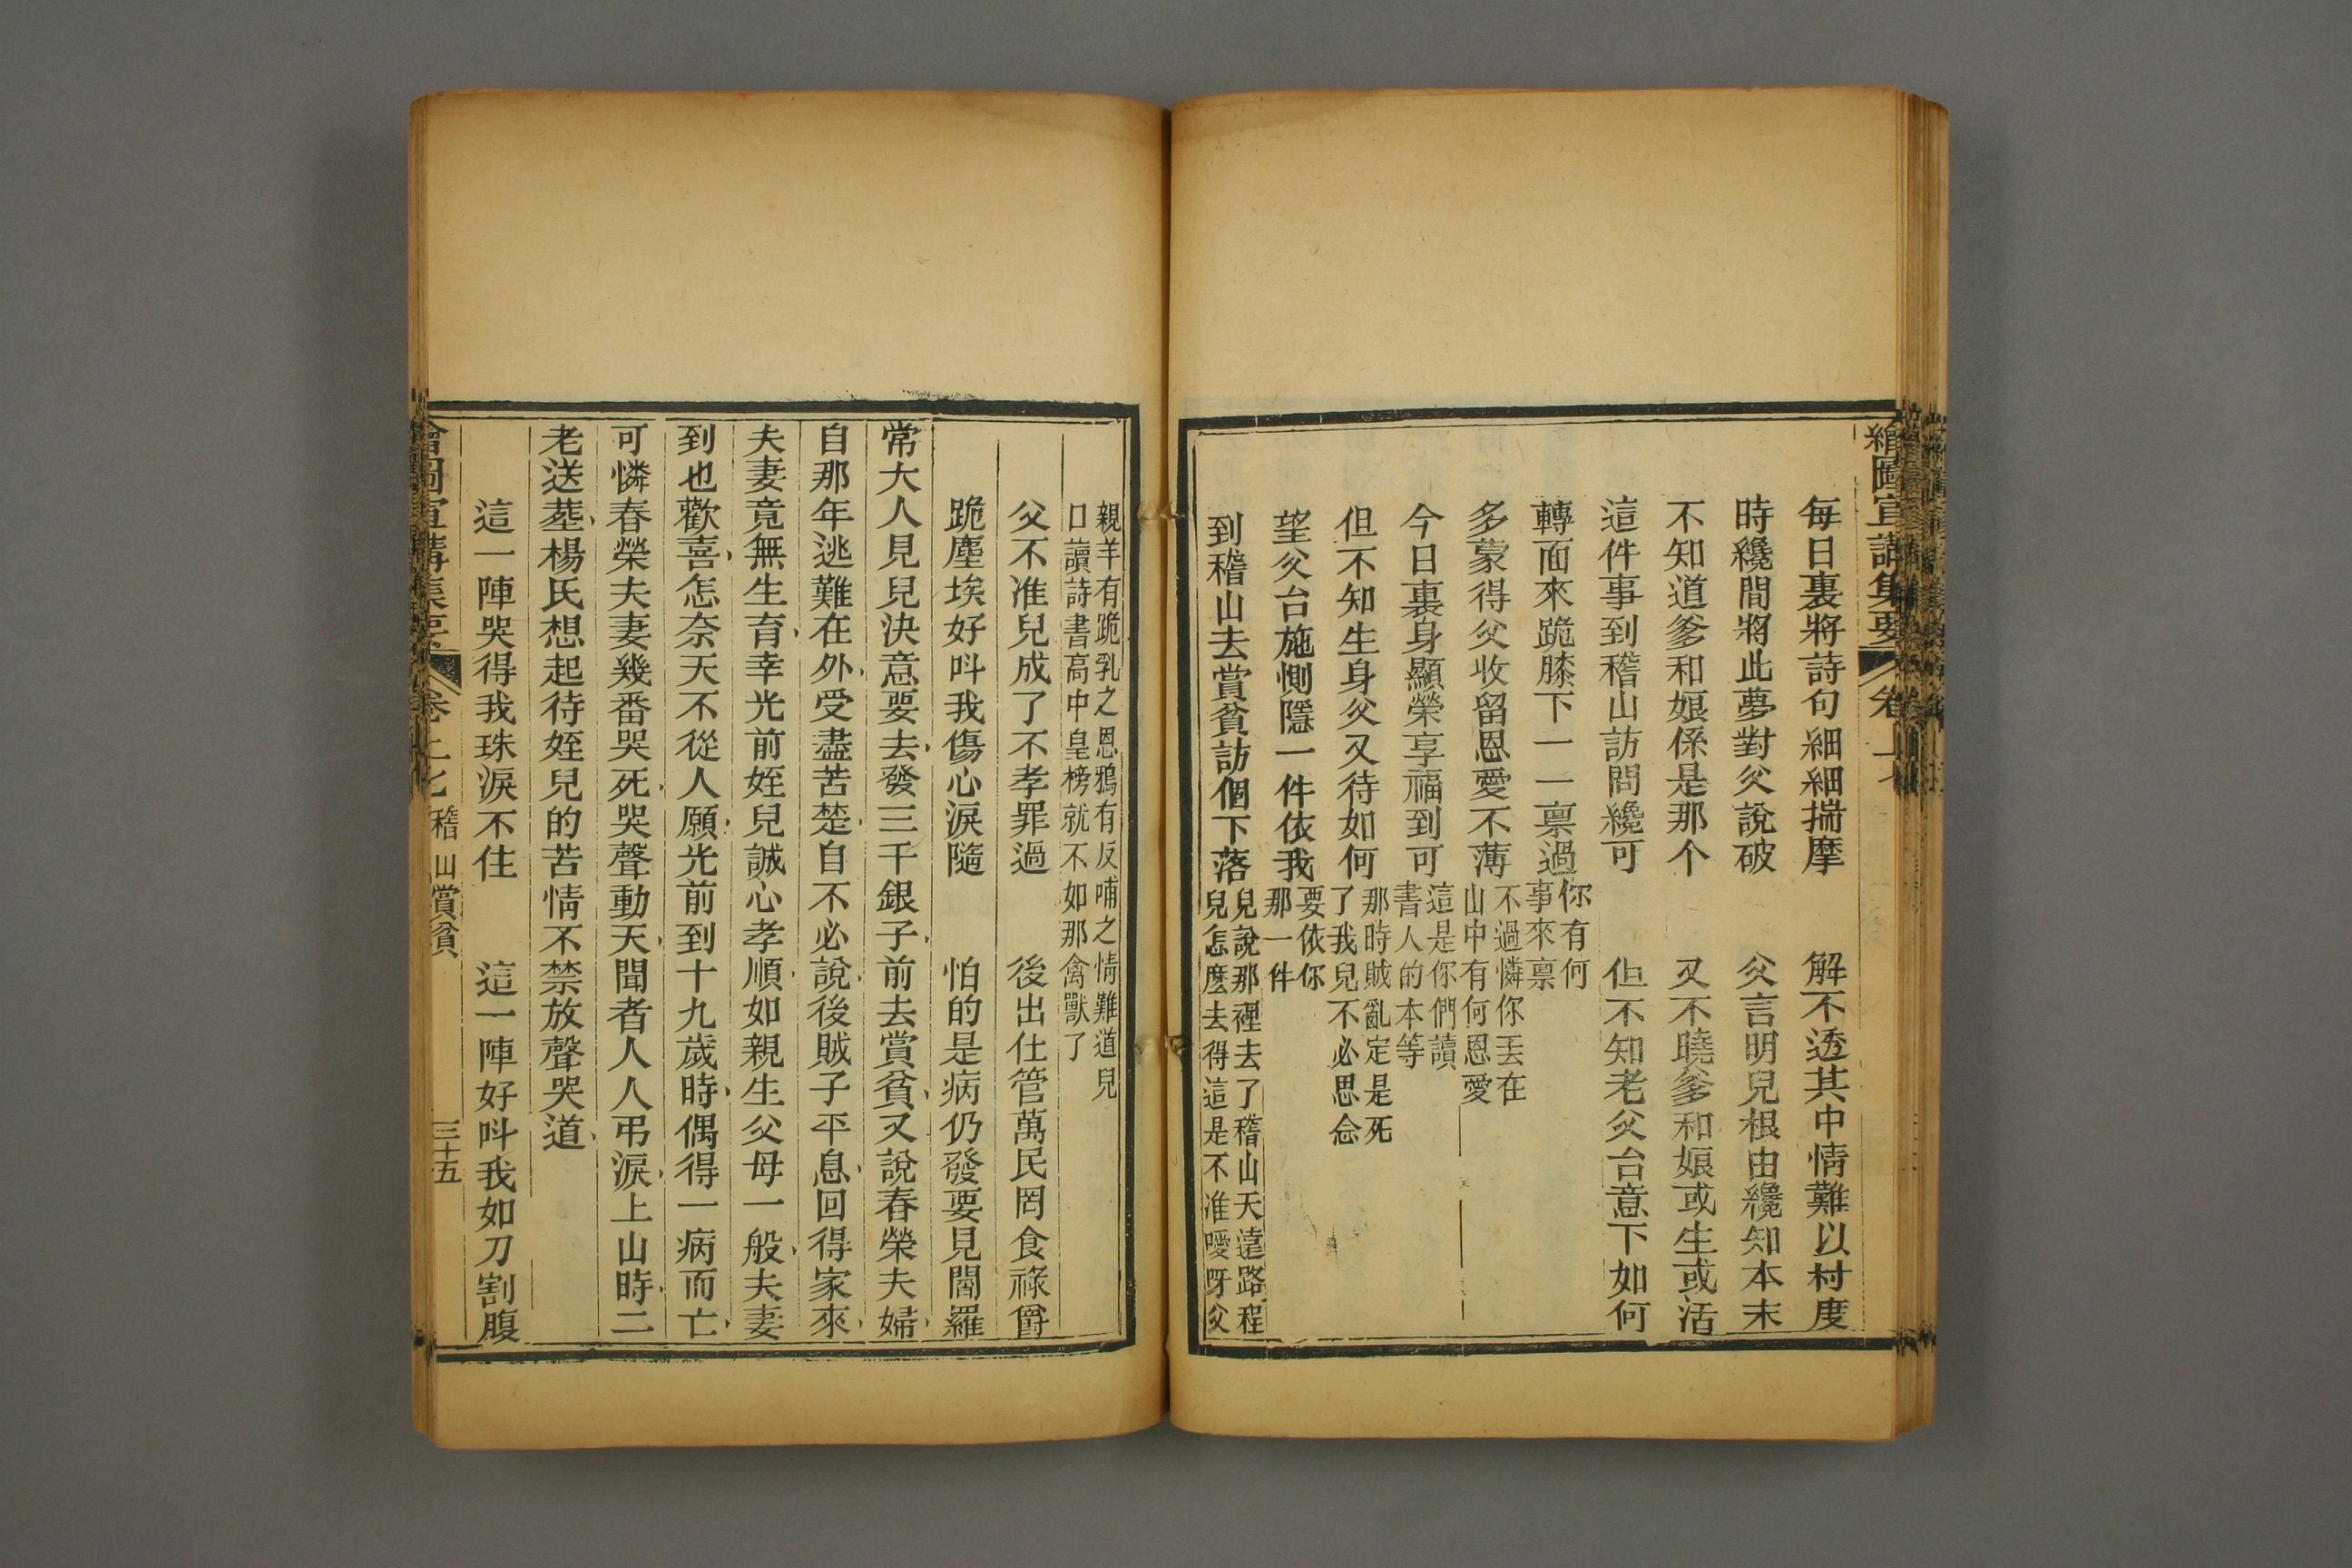 繪圖宣講集要 卷十七
每日裏將詩句細細揣摩 解不透其中情難以村度
時纔間將此夢對父說破 父言明兒根由纔知本末
不知道爹和娘係是那个 又不曉爹和娘或生或活
這件事到稽山訪問纔可 但不知老父台意下如何
轉面來跪膝下一一禀過 你有何事來禀
多蒙得父收留恩愛不薄 不過憐你丟在山中有何恩愛
今日裏身顯榮享福到可 這是你們讀書人的本等
但不知生身父又待如何 那時賊亂定是死了我兒不必思念
望父台施惻隱一件依我 要依你那一件
到稽山去賞貧訪個下落 兒說那裡去了稽山天遠路程兒怎麼去得這是不准噯呀父
親羊有跪乳之恩鴉有反哺之情難道兒口讀詩書高中皇榜就不如那禽獸了
父不准兒成了不孝罪過 後出仕管萬民罔食祿爵
跪塵埃好呌我傷心淚隨 怕的是病仍發要見閻羅
常大人見兒決意要去發三千銀子前去賞貧又說春榮夫婦
自那年逃難在外受盡苦楚自不必說後賊子平息回得家來
夫妻竟無生育幸光前姪兒誠心孝順如親生父母一般夫妻
到也歡喜怎奈天不從人願光前到十九歲時偶得一病而亡
可憐春榮夫妻幾番哭死哭聲動天聞者人人弔淚上山時二
老送塟楊氏想起待姪兒的苦情不禁放聲哭道
這一陣哭得我珠淚不住 這一陣好呌我如刀割腹
繪圖宣講集要 卷十七 稽山賞貧 三十五